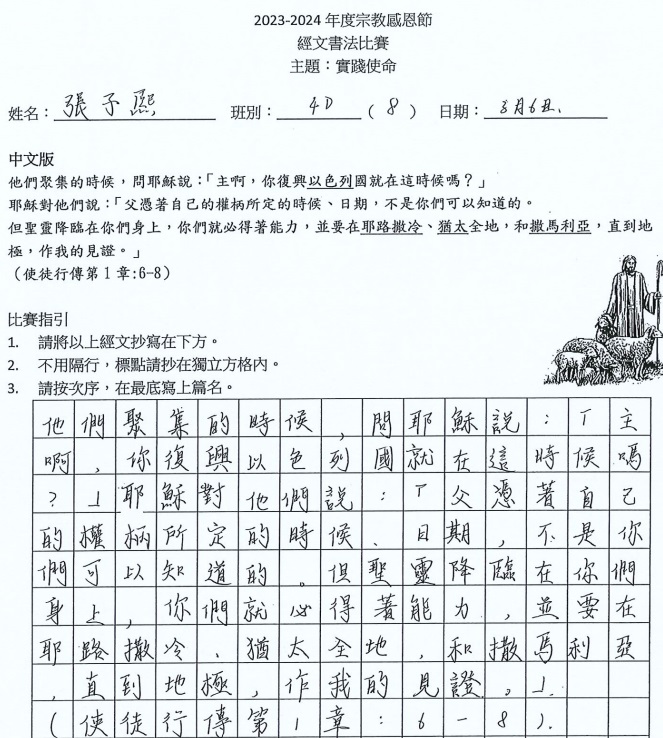 2023-2024 年度宗教感恩節
經文書法比賽
主題：實踐使命
姓名：張子熙 班別：4D（8） 日期：3月6日.
中文版
他們聚集的時候，問耶穌說：「主啊，你復興以色列國就在這時候嗎？」
耶穌對他們說：「父憑著自己的權柄所定的時候、日期，不是你們可以知道的。
但聖靈降臨在你們身上，你們就必得著能力，並要在耶路撒冷、猶太全地，和撒馬利亞，直到地
極，作我的見證。」
（使徒行傳第 1 章:6-8）
比賽指引
1. 請將以上經文抄寫在下方。
2. 不用隔行，標點請抄在獨立方格內。
3. 請按次序，在最底寫上篇名。
他們聚集的時候，問耶穌說：「主
啊，你復興以色列國就在這時候嗎
？」耶穌對他們說：「父憑著自己
的權柄所定的時候、日期，不是你
們可以知道的。但聖靈降臨在你們
身上，你們就必得著能力，並要在
耶路撒冷、猶太全地，和撒馬利亞
，直到地極，作我的見證。」.
（使徒行傳第1章：6-8）.